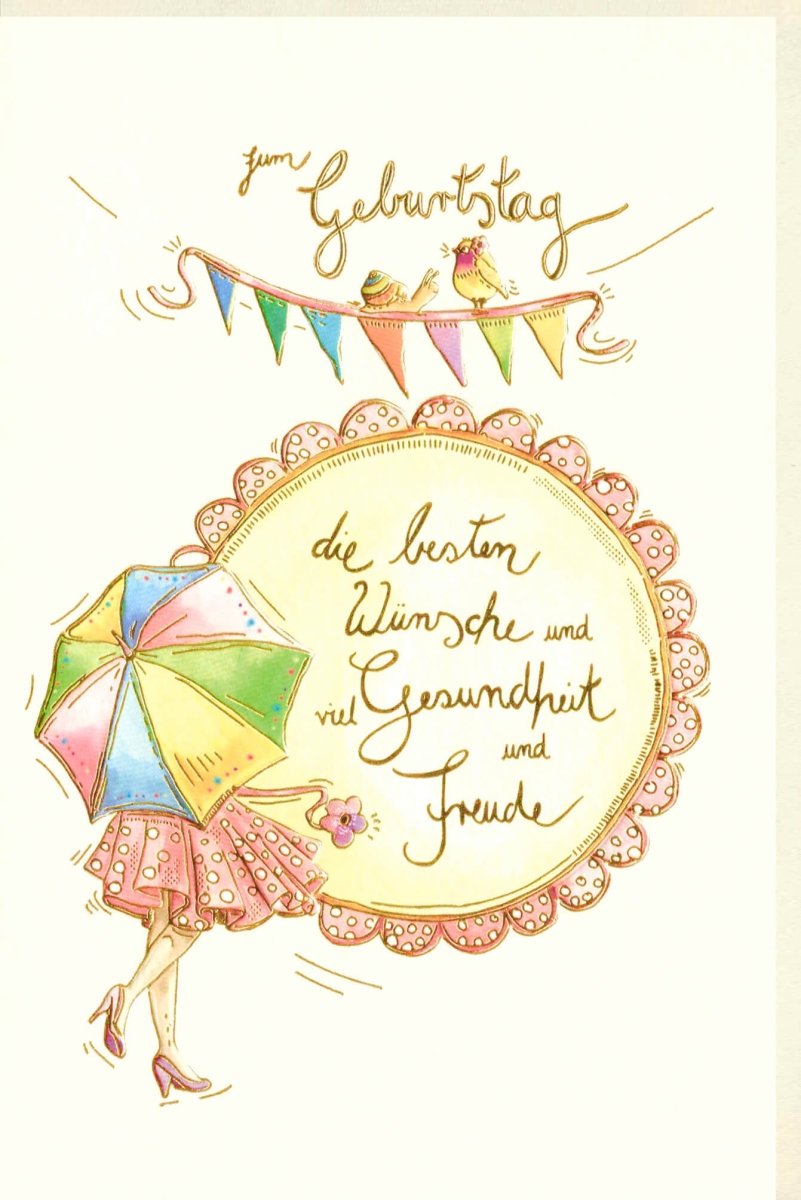 zum
Geburtstag
die besten
Wünsche und
viel Gesundheit
und
Freude